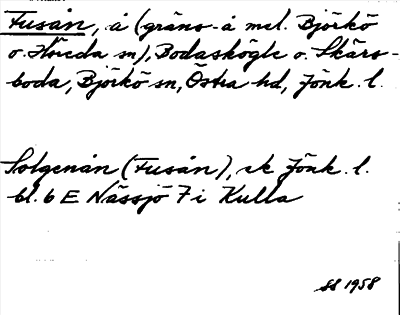 Fusån, å (gräns-å mel. Björkö
o. Hvreda sn), Bodaskögle o. Skärs-
boda, Björkö sn, Östra hd, Jönk. l.
Solgenån (Fusån), ek Jönk. l.
bl. 6 E Nässjö 7 i Kulla
SS 1958